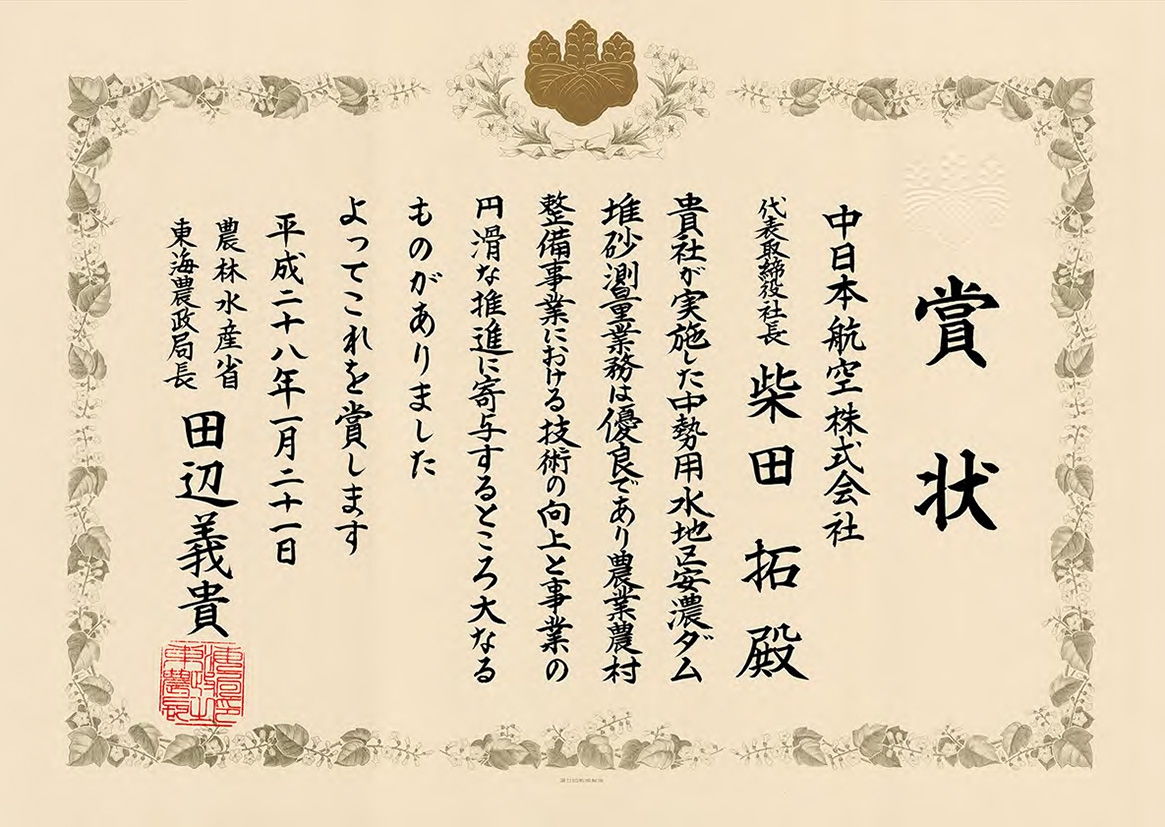 賞状
中日本航空株式会社
代表取締役社長 柴田 拓 殿
貴社が実施した中勢用水地区安濃ダム
堆砂測量業務は優良であり農業農村
整備事業における技術の向上と事業の
円滑な推進に寄与するところ大なる
ものがありました
よってこれを賞します
平成二十八年一月二十一日
農林水産省
東海農政局長 田辺義貴